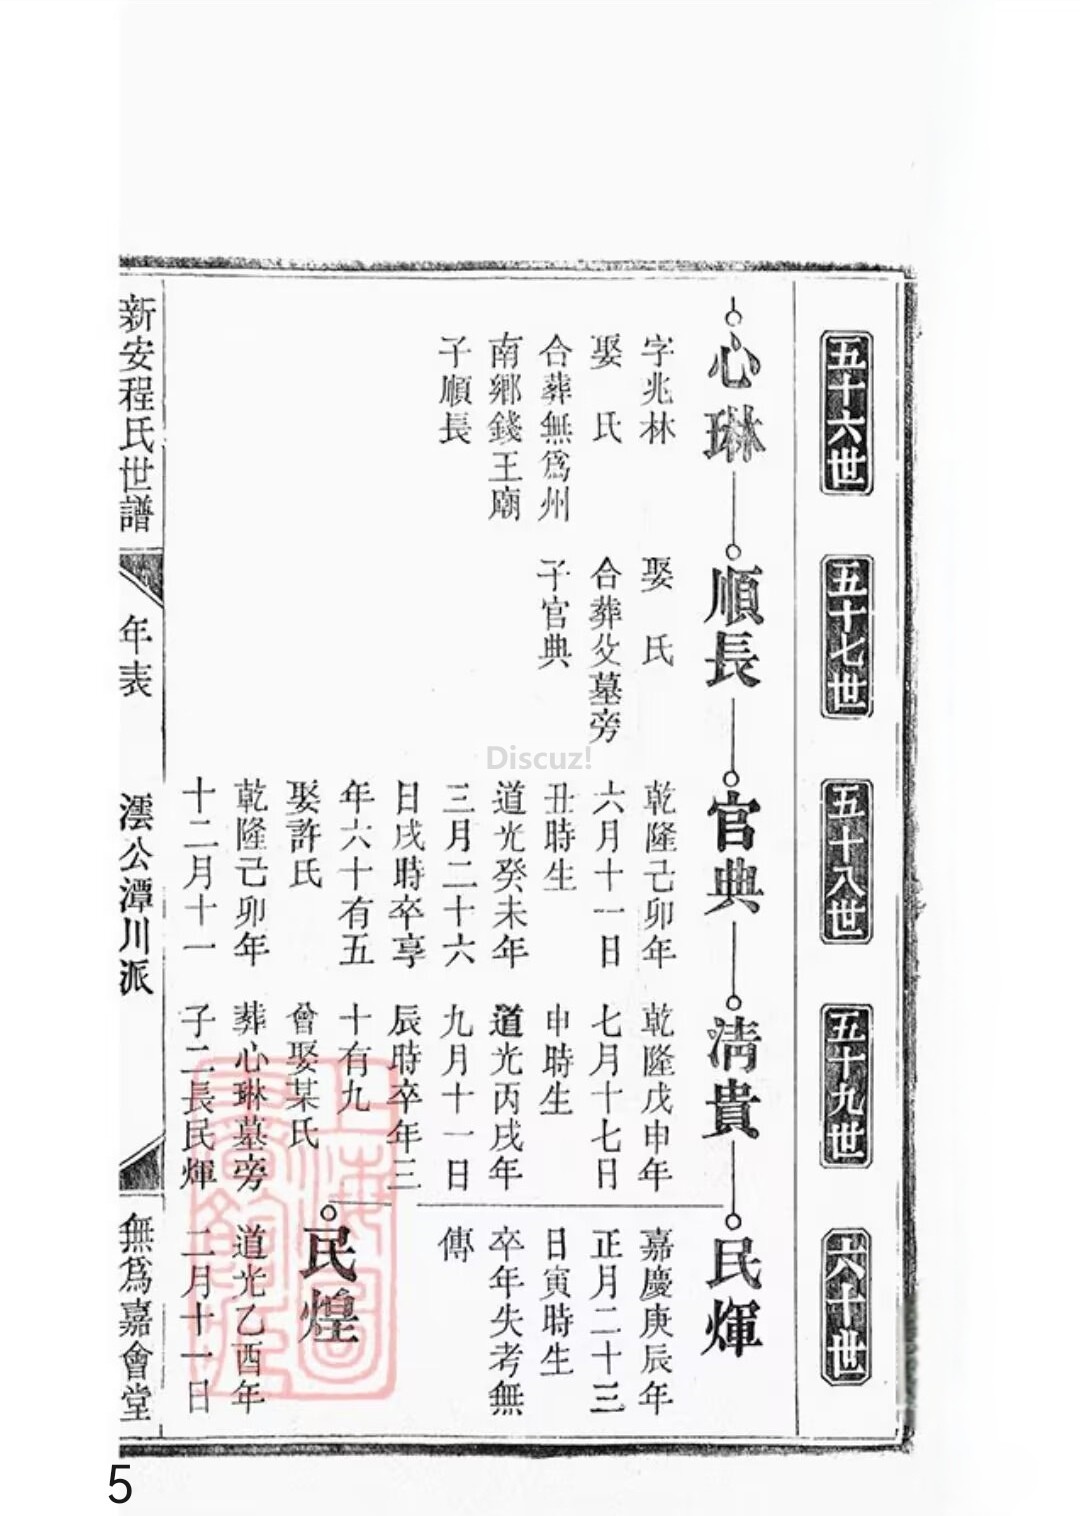 五十六世
五十七世
五十八世
五十九世
六十世
心琳
字兆林
娶　氏
合葬無爲州
南鄉錢王廟
子順長
順長
娶　氏
合葬父墓旁
子官典
官典
乾隆己卯年
六月十一日
丑時生
道光癸未年
三月二十六
日戌時卒享
年六十有五
娶許氏
乾隆己卯年
十二月十一
清貴
乾隆戊申年
七月十七日
申時生
道光丙戌年
九月十一日
辰時卒年三
十有九
曾娶某氏
葬心琳墓旁
子二長民輝
民輝
嘉慶庚辰年
正月二十三
日寅時生
卒年失考無
傳
民煌
道光乙酉年
二月十一日
新安程氏世譜
年表
澐公潭川派
無爲嘉會堂
Discuz!
5